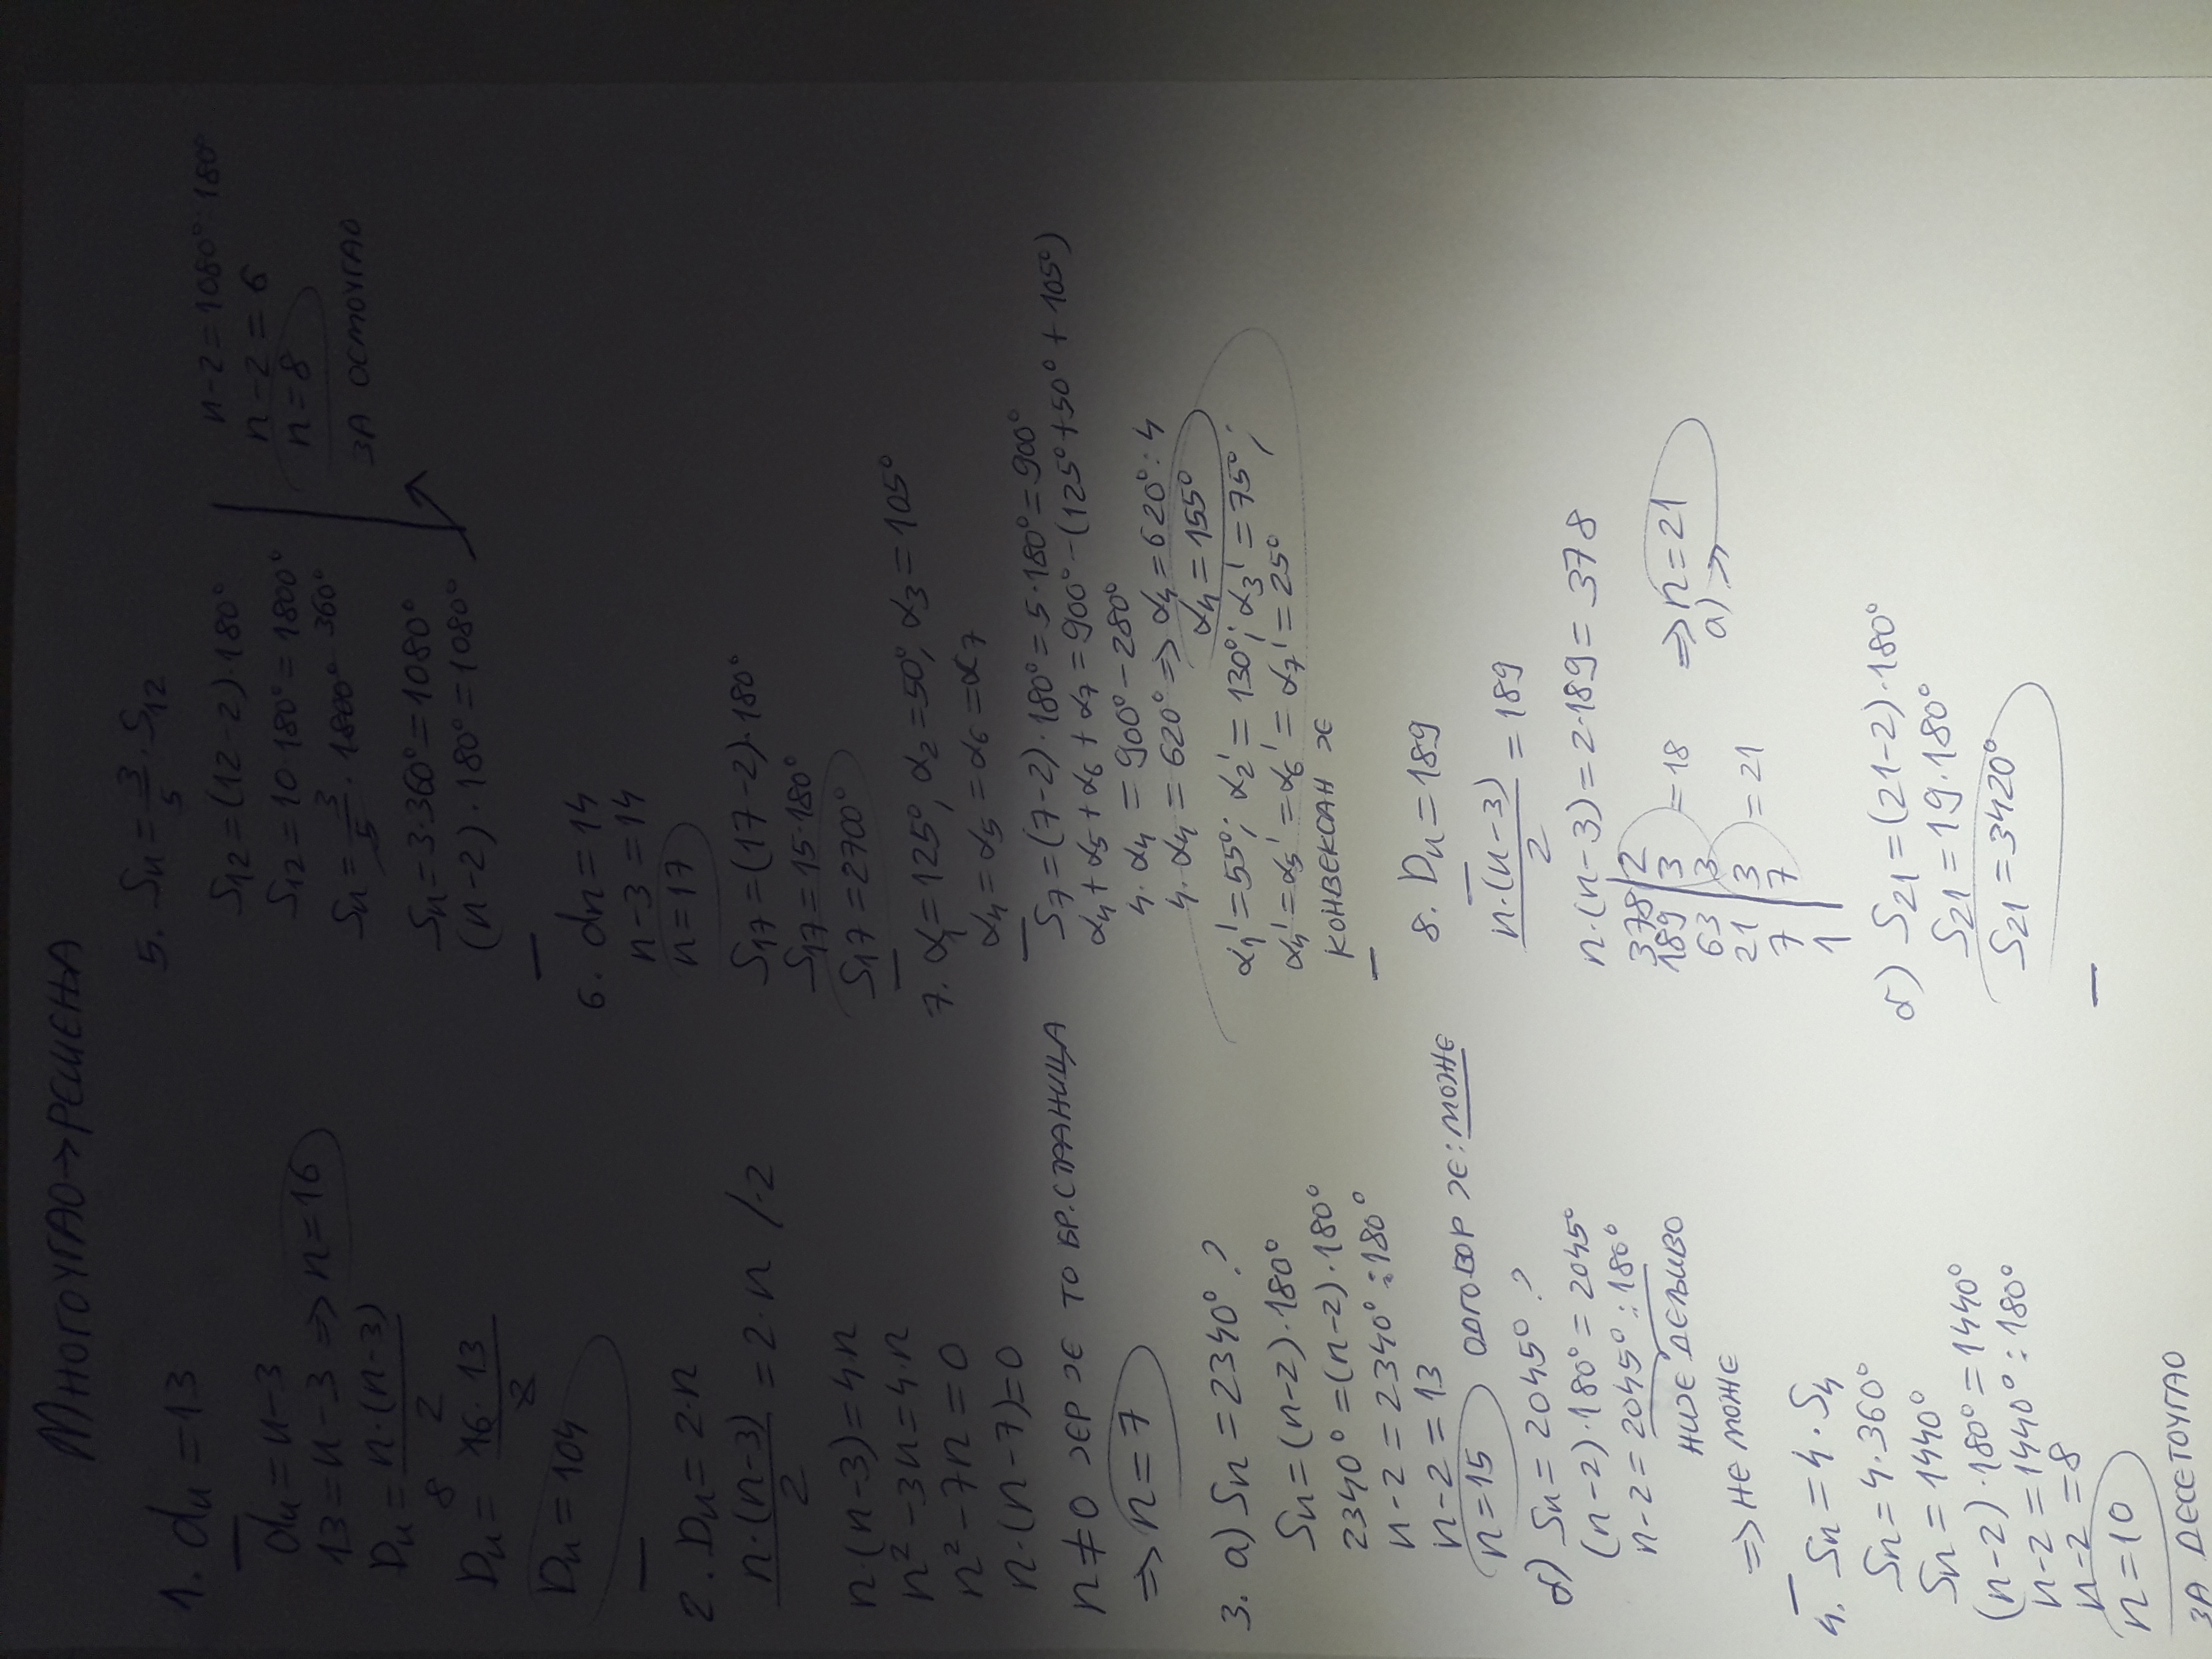 МНОГОУГАО→РЕШЕЊА
1. dn=13
dn=n-3
13=n-3⇒n=16
Dn=n·(n-3)/2
Dn=16·13/2
8
Dn=104
2. Dn=2·n
n·(n-3)/2=2·n /·2
n·(n-3)=4n
n²-3n=4·n
n²-7n=0
n·(n-7)=0
n≠0 ЈЕР ЈЕ ТО БР.СТРАНИЦА
⇒n=7
3. а) Sn=2340°?
Sn=(n-2)·180°
2340°=(n-2)·180°
n-2=2340°:180°
n-2=13
n=15 ОДГОВОР ЈЕ: МОЖЕ
б) Sn=2045°?
(n-2)·180°=2045°
n-2=2045°:180°
НИЈЕ ДЕЉИВО
⇒НЕ МОЖЕ
4. Sn=4·S4
Sn=4·360°
Sn=1440°
(n-2)·180°=1440°
n-2=1440°:180°
n-2=8
n=10
ЗА ДЕСЕТОУГАО
5. Sn=3/5·S12
S12=(12-2)·180°
S12=10·180°=1800°
Sn=3/5·1800° 360°
Sn=3·360°=1080°
(n-2)·180°=1080°
n-2=1080°:180°
n-2=6
n=8
ЗА ОСМОУГАО
6. dn=14
n-3=14
n=17
S17=(17-2)·180°
S17=15·180°
S17=2700°
7. α1=125°, α2=50°, α3=105°
α4=α5=α6=α7
S7=(7-2)·180°=5·180°=900°
α4+α5+α6+α7=900°-(125°+50°+105°)
4·α4=900°-280°
4·α4=620°⇒α4=620°:4
α4=155°
α1'=55°; α2'=130°; α3'=75°;
α4'=α5'=α6'=α7'=25°
КОНВЕКСАН ЈЕ
8. Dn=189
n·(n-3)/2=189
n·(n-3)=2·189=378
378|2
189|3 =18 ⇒n=21
63|3 а)
21|3 =21
7|7
1
б) S21=(21-2)·180°
S21=19·180°
S21=3420°